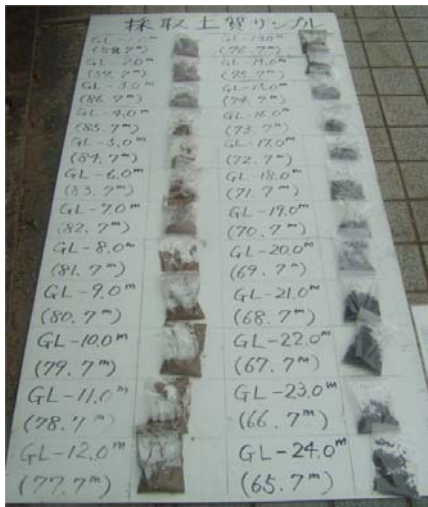 採取土質サンプル
GL-1.0m
(88.7m)
GL-2.0m
(87.7m)
GL-3.0m
(86.7m)
GL-4.0m
(85.7m)
GL-5.0m
(84.7m)
GL-6.0m
(83.7m)
GL-7.0m
(82.7m)
GL-8.0m
(81.7m)
GL-9.0m
(80.7m)
GL-10.0m
(79.7m)
GL-11.0m
(78.7m)
GL-12.0m
(77.7m)
GL-13.0m
(76.7m)
GL-14.0m
(75.7m)
GL-15.0m
(74.7m)
GL-16.0m
(73.7m)
GL-17.0m
(72.7m)
GL-18.0m
(71.7m)
GL-19.0m
(70.7m)
GL-20.0m
(69.7m)
GL-21.0m
(68.7m)
GL-22.0m
(67.7m)
GL-23.0m
(66.7m)
GL-24.0m
(65.7m)